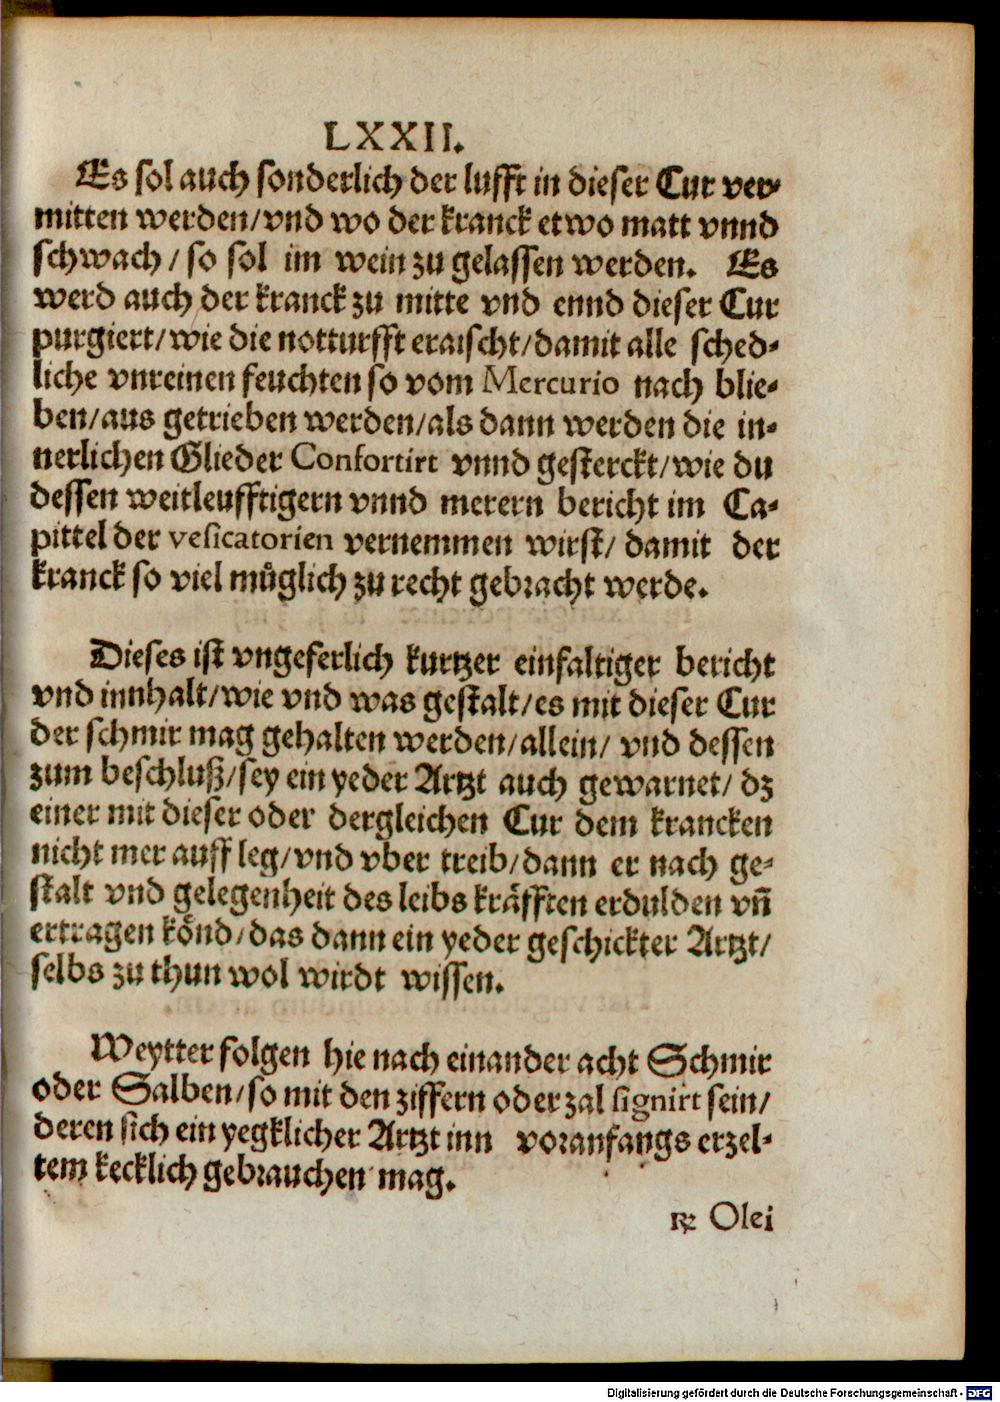 LXXII.
Es sol auch sonderlich der lufft in dieser Cur ver-
mitten werden/vnd wo der kranck etwo matt vnnd
schwach/ so sol im wein zu gelassen werden. Es
werd auch der kranck zu mitte vnd ennd dieser Cur
purgiert/wie die notturfft eraischt/damit alle sched-
liche vnreinen feuchten so vom Mercurio nach blie-
ben/aus getrieben werden/als dann werden die in-
nerlichen Glieder Confortirt vnnd gesterckt/wie du
dessen weitleufftigern vnnd merern bericht im Ca-
pittel der vesicatorien vernemmen wirst/ damit der
kranck so viel müglich zu recht gebracht werde.
Dieses ist vngeferlich kurtzer einfaltiger bericht
vnd innhalt/wie vnd was gestalt/es mit dieser Cur
der schmir mag gehalten werden/allein/ vnd dessen
zum beschluß/sey ein yeder Artzt auch gewarnet/ dz
einer mit dieser oder dergleichen Cur dem krancken
nicht mer auff leg/vnd vber treib/dann er nach ge-
stalt vnd gelegenheit des leibs kräfften erdulden vñ
ertragen könd/das dann ein yeder geschickter Artzt/
selbs zu thun wol wirdt wissen.
Weytter folgen hie nach einander acht Schmir
oder Salben/so mit den ziffern oder zal signirt sein/
deren sich ein yegklicher Artzt inn voranfangs erzel-
tem kecklich gebrauchen mag.
℞ Olei
Digitalisierung gefördert durch die Deutsche Forschungsgemeinschaft - DFG